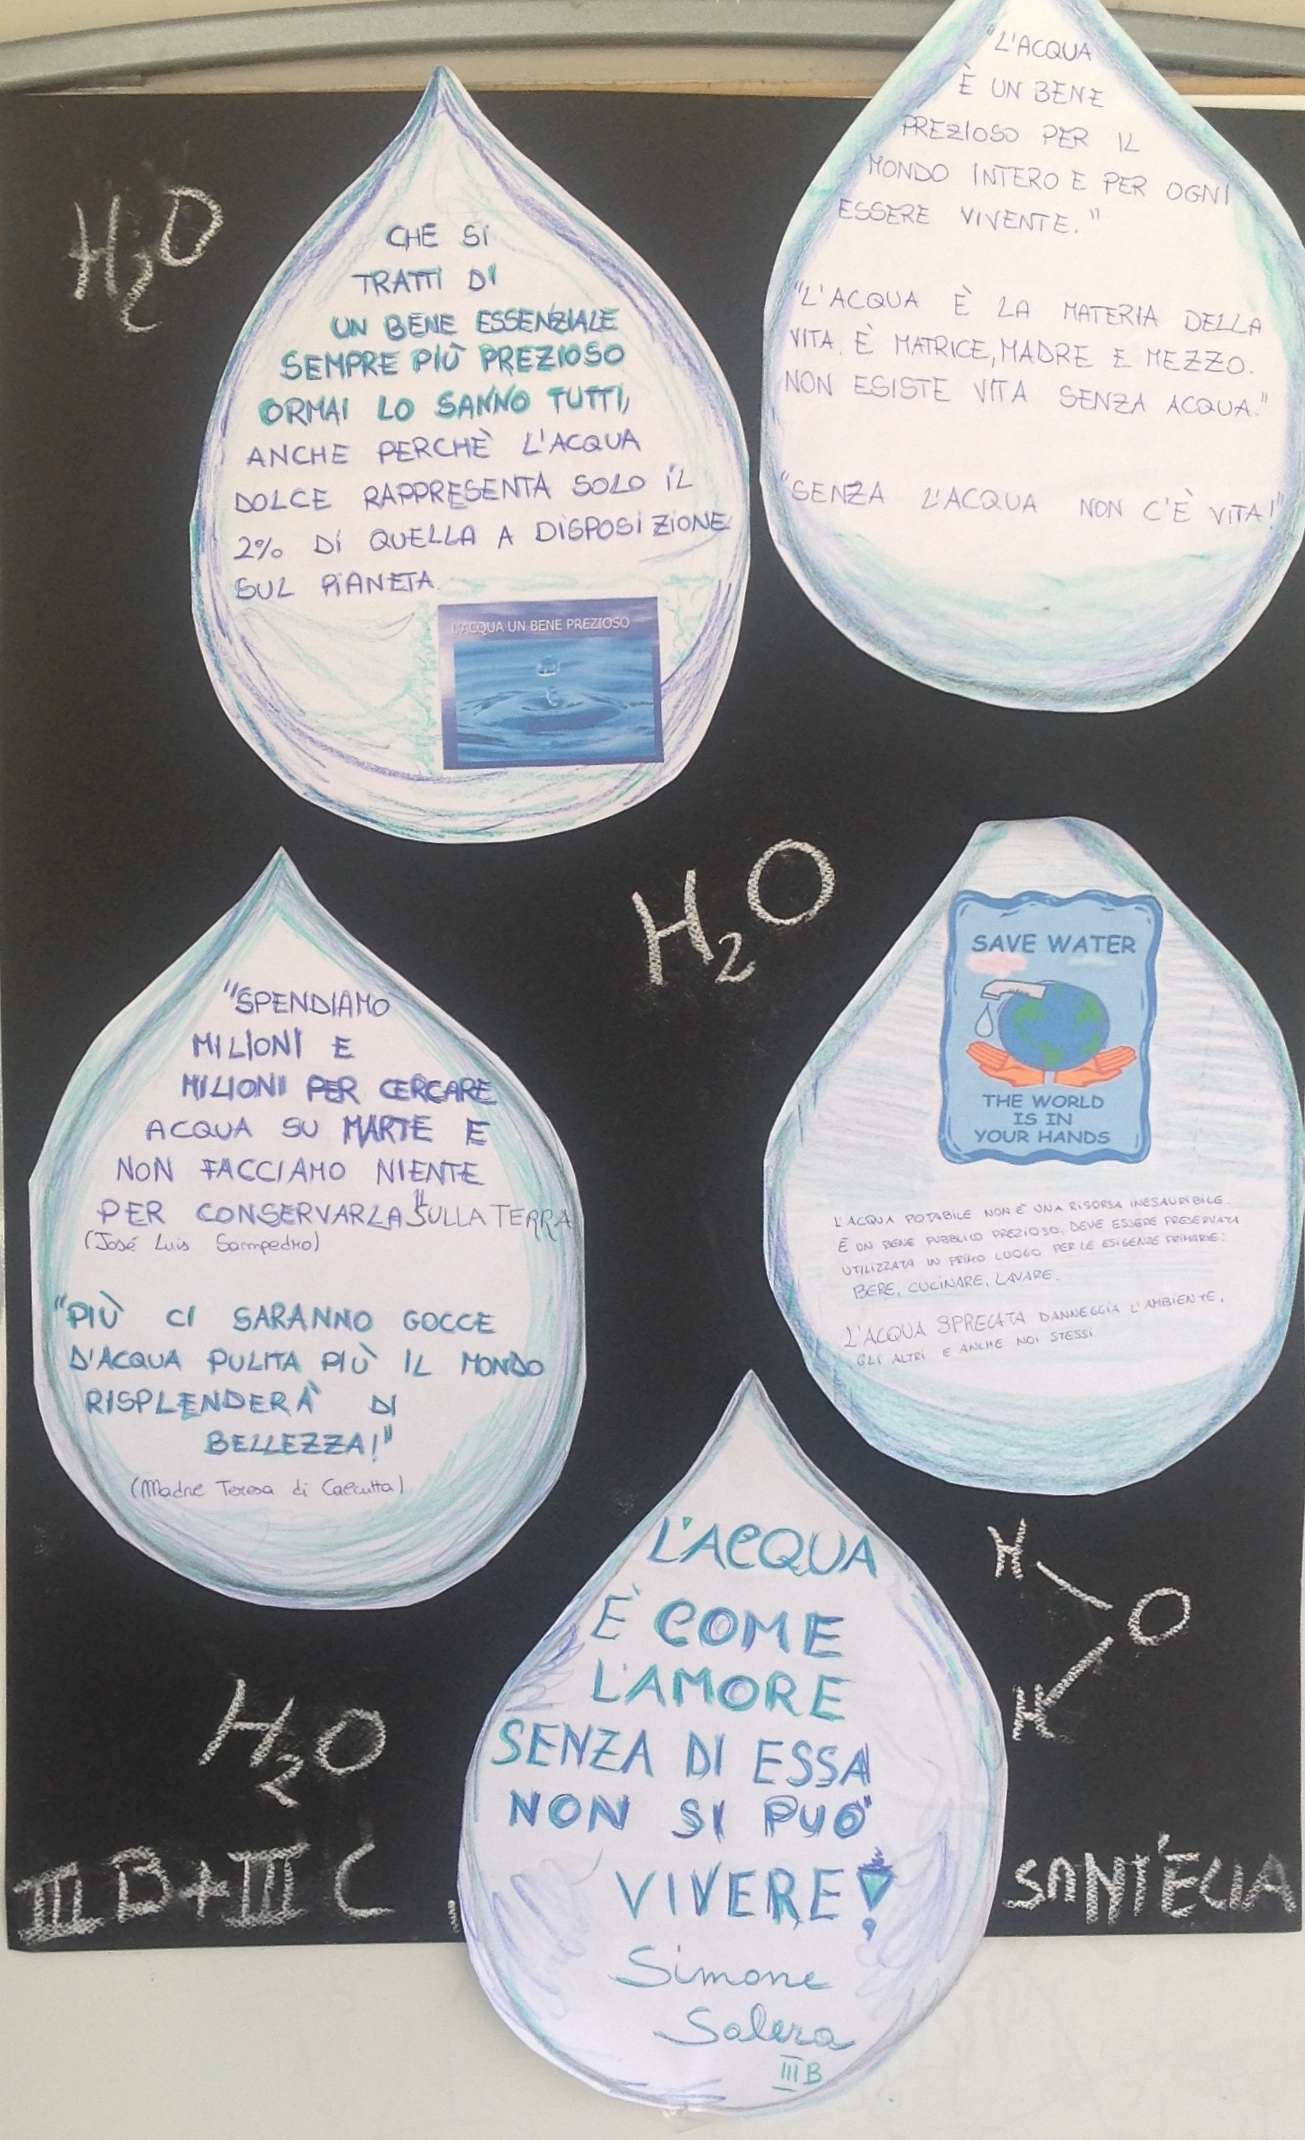 H2O
CHE SI
TRATTI DI
UN BENE ESSENZIALE
SEMPRE PIÙ PREZIOSO
ORMAI LO SANNO TUTTI,
ANCHE PERCHÈ L'ACQUA
DOLCE RAPPRESENTA SOLO IL
2% DI QUELLA A DISPOSIZIONE
SUL PIANETA.
L'ACQUA UN BENE PREZIOSO
"L'ACQUA
È UN BENE
PREZIOSO PER IL
MONDO INTERO E PER OGNI
ESSERE VIVENTE."
"L'ACQUA È LA MATERIA DELLA
VITA. È MATRICE, MADRE E MEZZO.
NON ESISTE VITA SENZA ACQUA."
"SENZA L'ACQUA NON C'È VITA!"
H2O
"SPENDIAMO
MILIONI E
MILIONI PER CERCARE
ACQUA SU MARTE E
NON FACCIAMO NIENTE
PER CONSERVARLA "SULLA TERRA
(José Luis Sampedro)
"PIÙ CI SARANNO GOCCE
D'ACQUA PULITA PIÙ IL MONDO
RISPLENDERÀ DI
BELLEZZA!"
(Madre Teresa di Calcutta)
SAVE WATER
THE WORLD
IS IN
YOUR HANDS
L'ACQUA POTABILE NON È UNA RISORSA INESAURIBILE.
È UN BENE PUBBLICO PREZIOSO; DEVE ESSERE PRESERVATA
UTILIZZATA IN PRIMO LUOGO PER LE ESIGENZE PRIMARIE:
BERE, CUCINARE, LAVARE.
L'ACQUA SPRECATA DANNEGGIA L'AMBIENTE,
GLI ALTRI E ANCHE NOI STESSI
L'ACQUA
E' COME
L'AMORE
SENZA DI ESSA
NON SI PUO'
VIVERE!
Simone
Salera
III B
H
O
H
H2O
III B+III C
SANT'ELIA